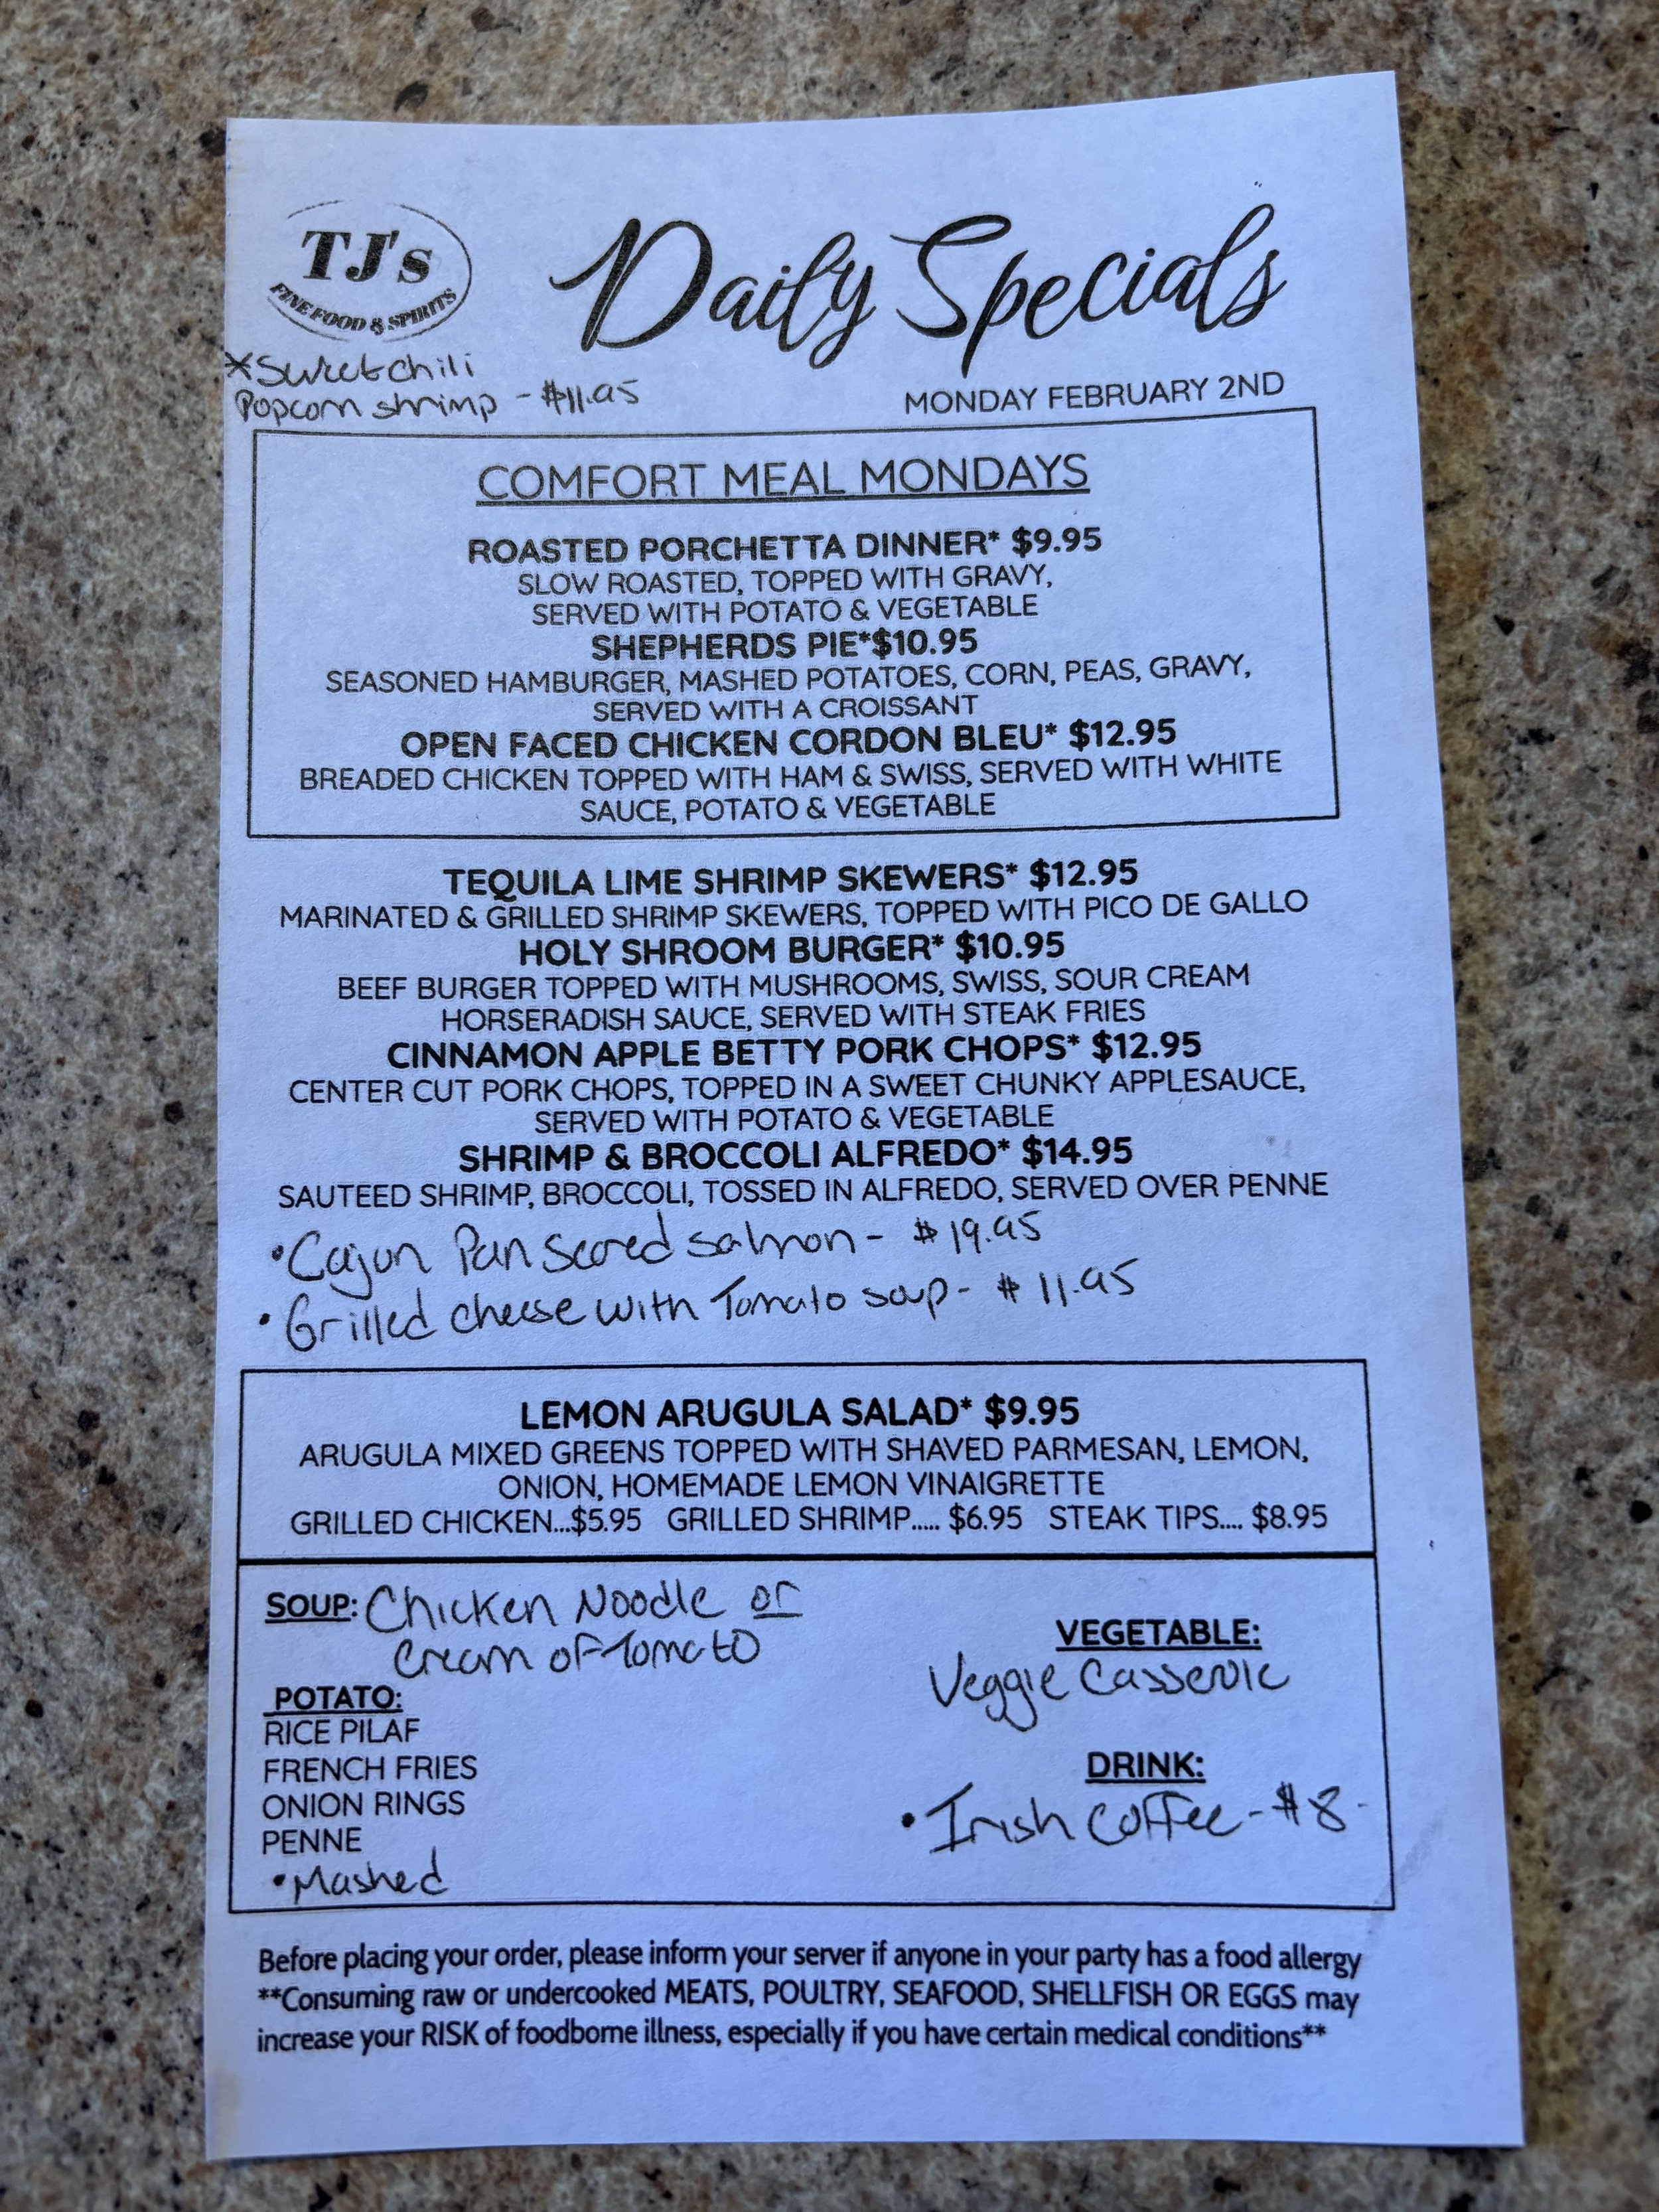 TJ's
FINE FOOD & SPIRITS
Daily Specials
*Sweet chili
Popcorn shrimp - $11.95
MONDAY FEBRUARY 2ND
COMFORT MEAL MONDAYS
ROASTED PORCHETTA DINNER* $9.95
SLOW ROASTED, TOPPED WITH GRAVY,
SERVED WITH POTATO & VEGETABLE
SHEPHERDS PIE*$10.95
SEASONED HAMBURGER, MASHED POTATOES, CORN, PEAS, GRAVY,
SERVED WITH A CROISSANT
OPEN FACED CHICKEN CORDON BLEU* $12.95
BREADED CHICKEN TOPPED WITH HAM & SWISS, SERVED WITH WHITE
SAUCE, POTATO & VEGETABLE
TEQUILA LIME SHRIMP SKEWERS* $12.95
MARINATED & GRILLED SHRIMP SKEWERS, TOPPED WITH PICO DE GALLO
HOLY SHROOM BURGER* $10.95
BEEF BURGER TOPPED WITH MUSHROOMS, SWISS, SOUR CREAM
HORSERADISH SAUCE, SERVED WITH STEAK FRIES
CINNAMON APPLE BETTY PORK CHOPS* $12.95
CENTER CUT PORK CHOPS, TOPPED IN A SWEET CHUNKY APPLESAUCE,
SERVED WITH POTATO & VEGETABLE
SHRIMP & BROCCOLI ALFREDO* $14.95
SAUTEED SHRIMP, BROCCOLI, TOSSED IN ALFREDO, SERVED OVER PENNE
•Cajun Pan Seared salmon - $19.95
•Grilled cheese with Tomato soup - $11.95
LEMON ARUGULA SALAD* $9.95
ARUGULA MIXED GREENS TOPPED WITH SHAVED PARMESAN, LEMON,
ONION, HOMEMADE LEMON VINAIGRETTE
GRILLED CHICKEN...$5.95 GRILLED SHRIMP..... $6.95 STEAK TIPS.... $8.95
SOUP: Chicken Noodle or
Cream of Tomato
POTATO:
RICE PILAF
FRENCH FRIES
ONION RINGS
PENNE
•Mashed
VEGETABLE:
Veggie Casserole
DRINK:
•Irish Coffee - $8-
Before placing your order, please inform your server if anyone in your party has a food allergy
**Consuming raw or undercooked MEATS, POULTRY, SEAFOOD, SHELLFISH OR EGGS may
increase your RISK of foodborne illness, especially if you have certain medical conditions**